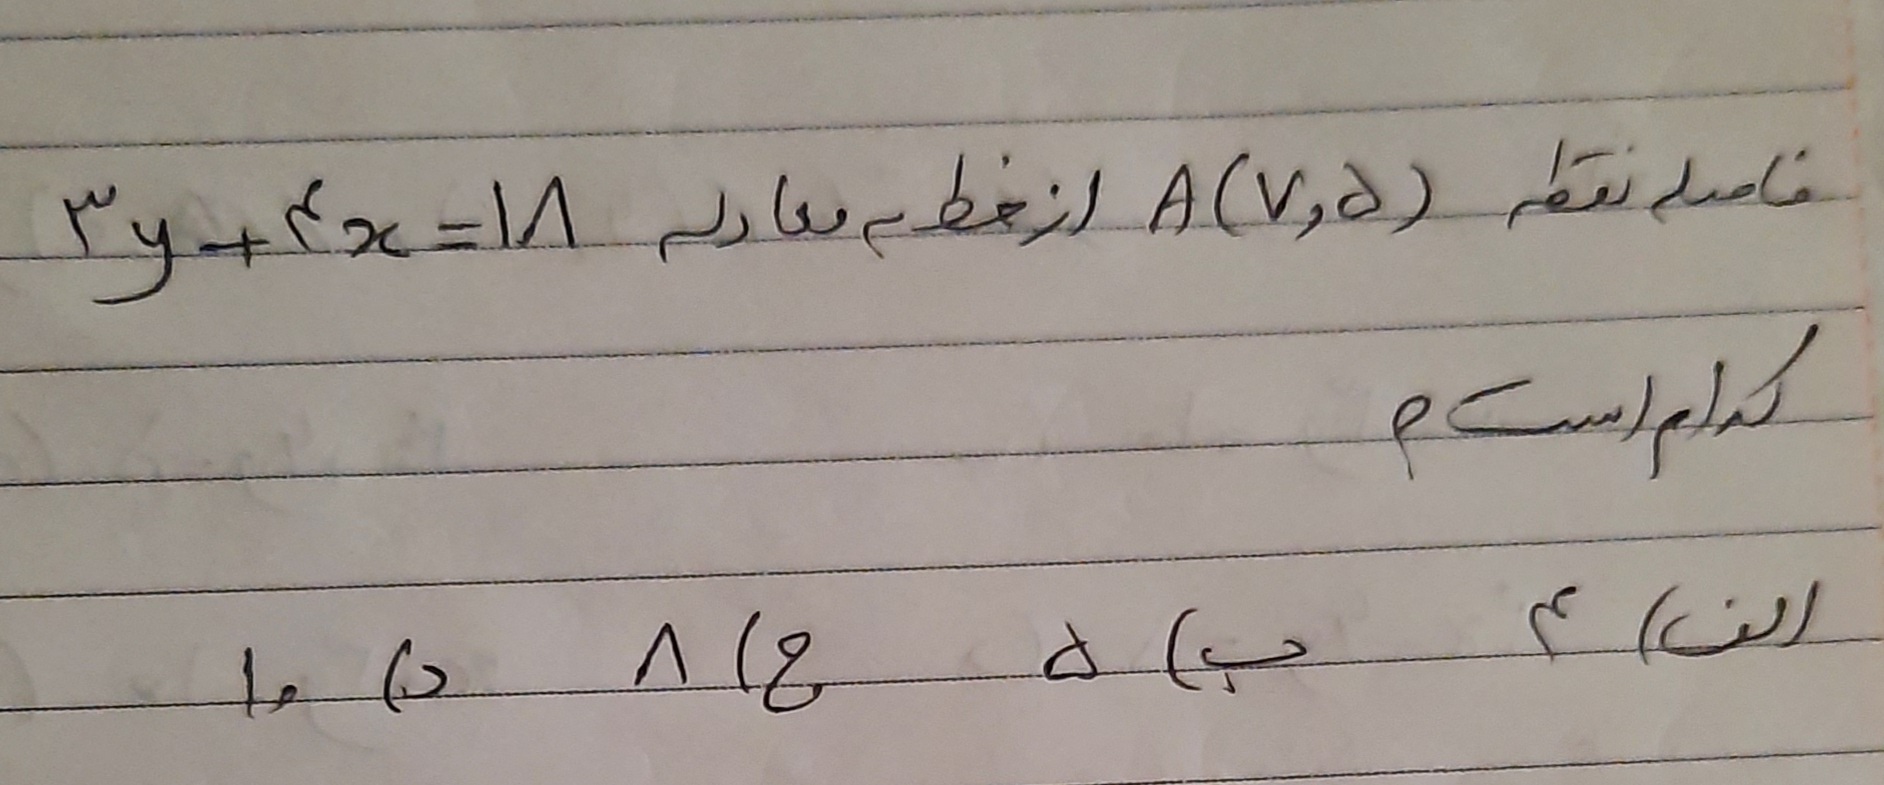 فاصله نقطه A(۷,۵) از خط به معادله ۳y+۴x=۱۸
کدام است ؟
الف) ۴ ب) ۵ ج) ۸ د) ۱۰